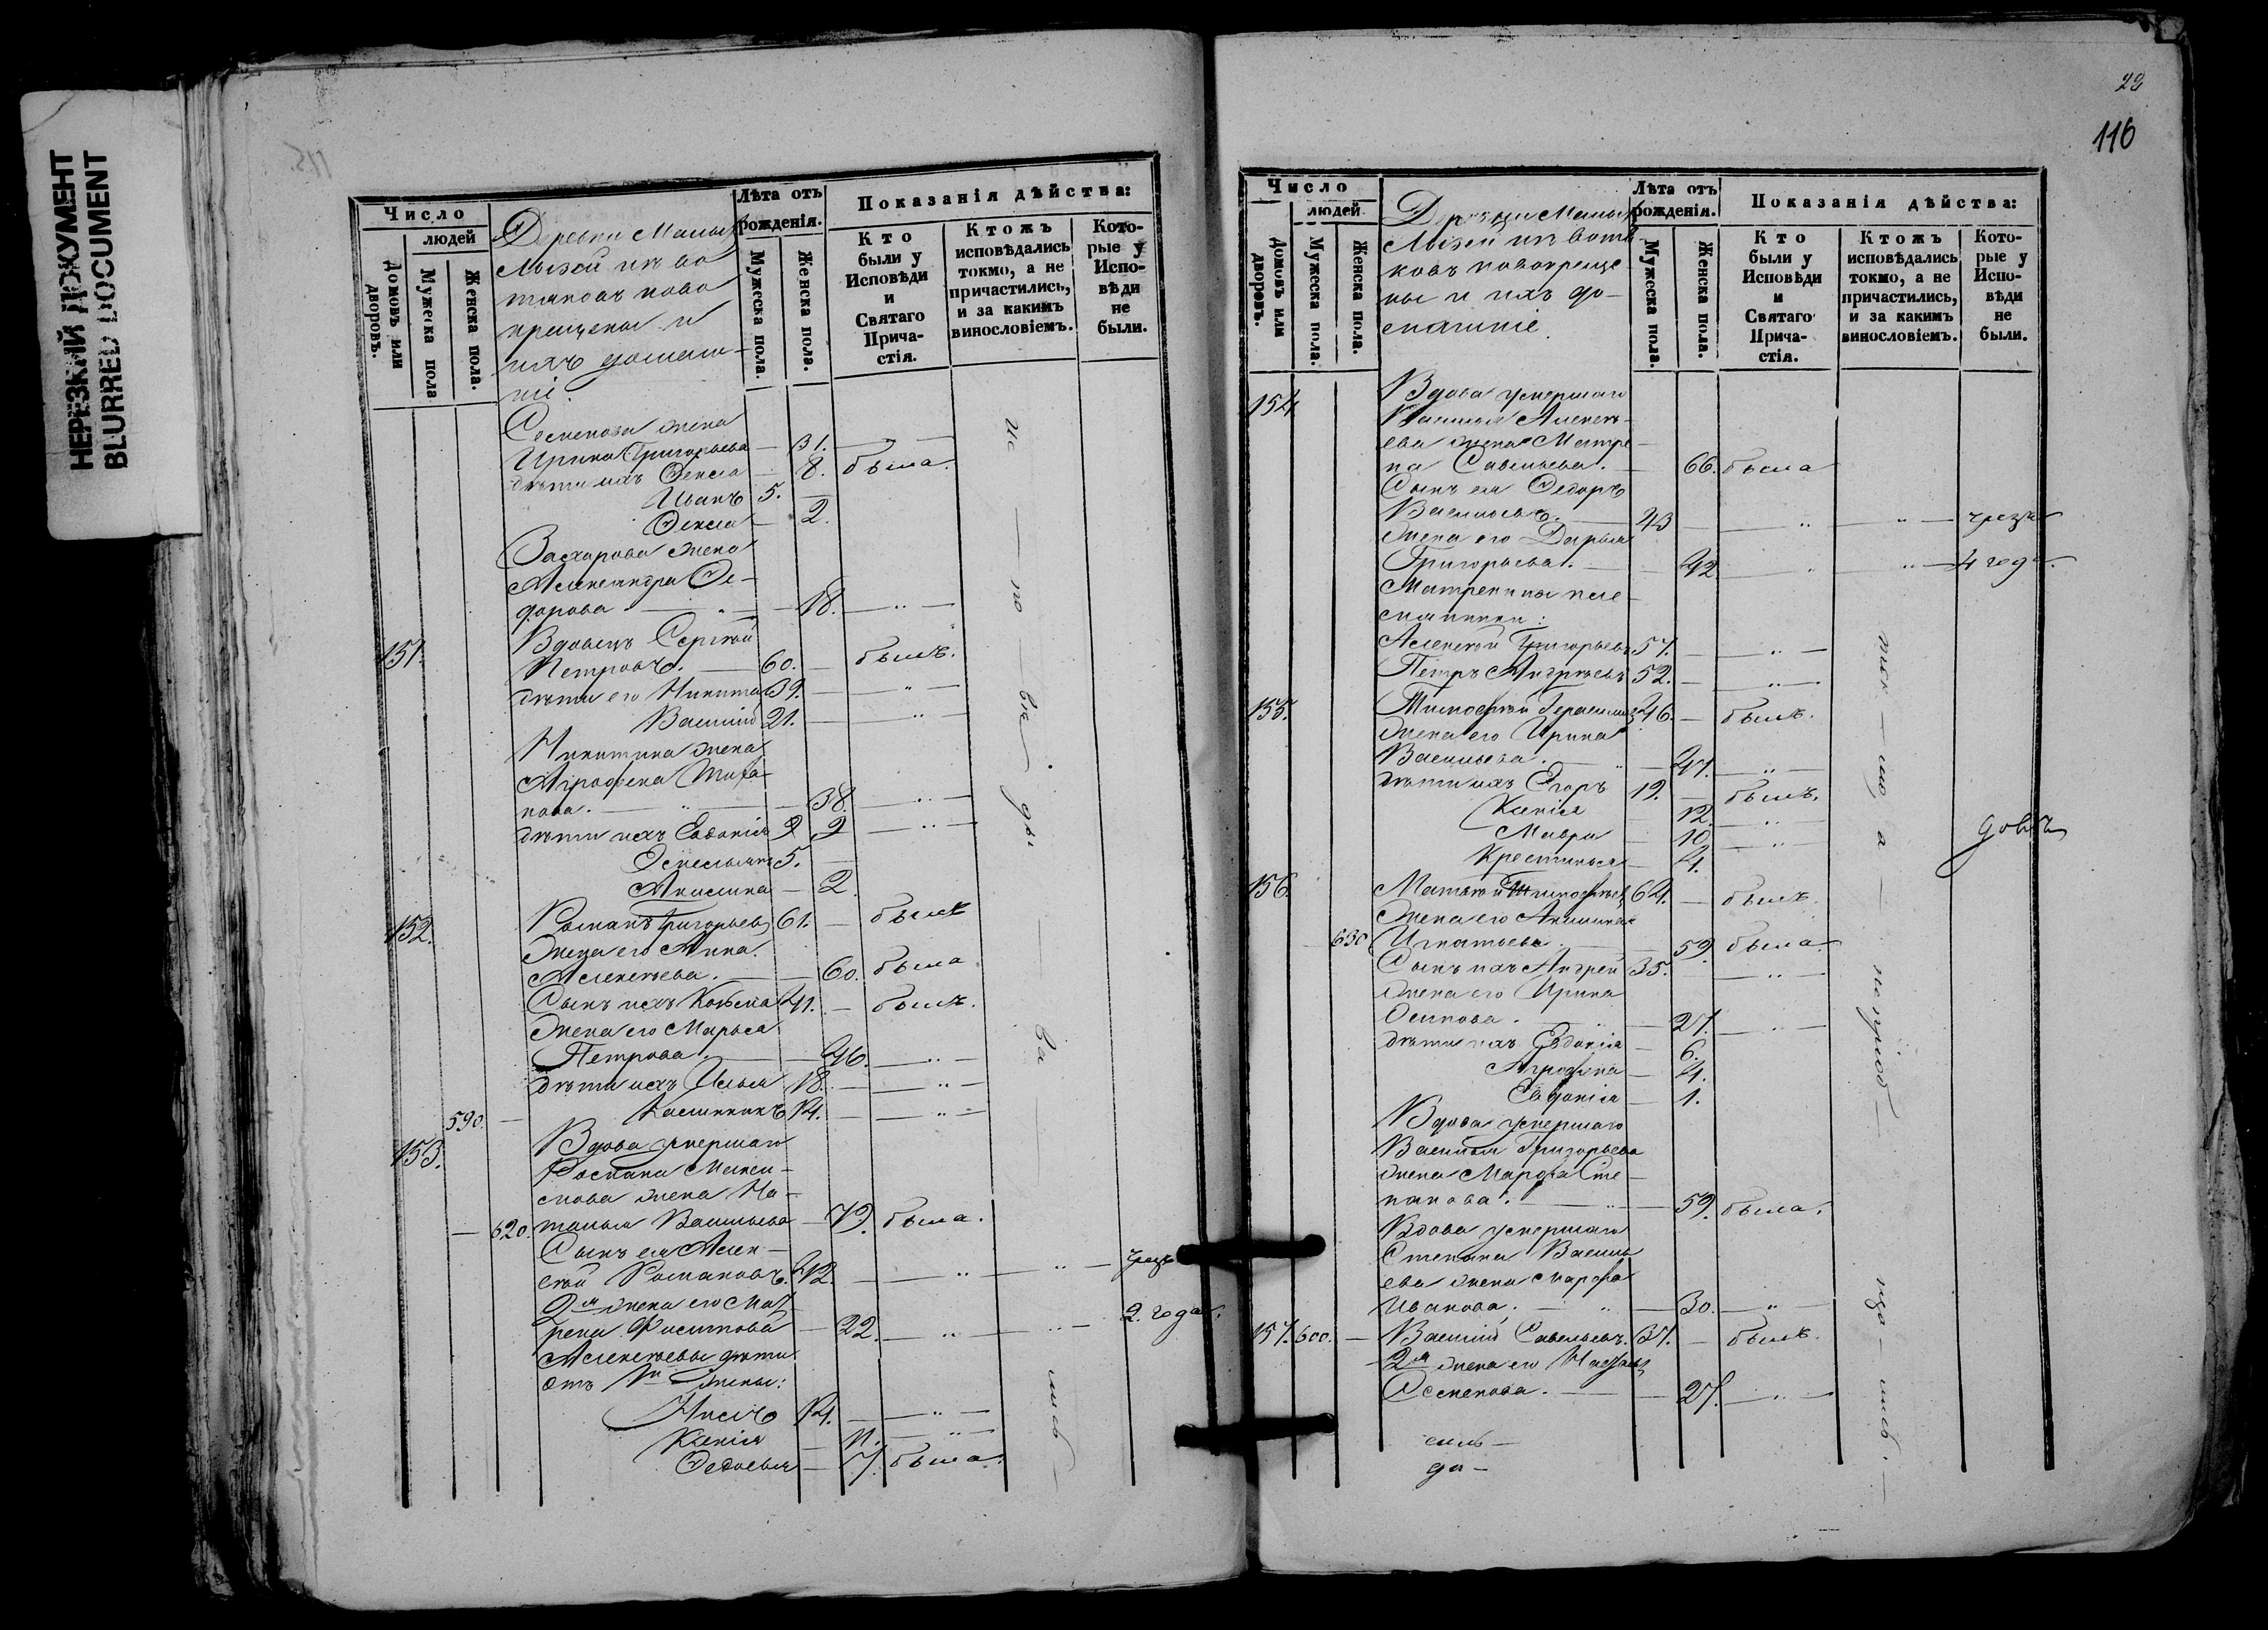 НЕРЕЗКИЙ ДОКУМЕНТ
BLURRED DOCUMENT
Число
людей
Домовъ или дворовъ.
Мужеска пола
Женска пола.
Деревни Малых
Лызей изъ во
тяковъ ново
крещены и
ихъ домаш-
ніе.
Лѣта отъ рожденія.
Мужеска пола.
Женска пола.
Показанія дѣйства:
Кто были у Исповѣди и Святаго Прича- стія.
Ктожъ исповѣдались токмо, а не причастились, и за какимъ винословіемъ.
Кото- рые у Испо- вѣди не были.
Семенова жена
Ирина Григорьева — 31. —
дѣти ихъ 8. была.
Иванъ 5. —
— 2.
Захарова жена
Александра Ѳе-
дорова. — 18. — „ —
151. Вдовецъ Сергѣй
Петровъ. — 60. — былъ.
дѣти его Никита 39. — „ —
Василій 21. — „ —
Никитина жена
Аграфена
нова. — „ — 38. — „ —
дѣти ихъ Евдокія 9 — „ —
5. —
Акилина — 2.
152. Романъ Григорьевъ 61. — былъ
Жена его Анна
Алексѣева. — 60. была
Сынъ ихъ Козьма 41. — былъ.
Жена его Марья
Петрова. — 46. — „ —
дѣти ихъ Илья 18. — „ —
590. — Каллинникъ 14. — „ —
153. Вдова умершаго
Романа Макси-
мова жена На-
— 620. талья Васильева — 79. была.
Сынъ ея Алек-
сѣй Романовъ. 42. — „ — „ — чрезъ
2я жена его Мат
рена — 22. — „ — „ — 2. года.
Алексѣевы дѣти
отъ 1й жены:
14. — „ —
Ксенія — 11. — „ —
Ѳедосья — 7. была.
22
116
Число
людей
Домовъ или дворовъ.
Мужеска пола.
Женска пола.
Деревни Малых
Лызей изъ вотя
ковъ новокреще
ны и ихъ до-
машніе.
Лѣта отъ рожденія.
Мужеска пола.
Женска пола.
Показанія дѣйства:
Кто были у Исповѣди и Святаго Прича- стія.
Ктожъ исповѣдались токмо, а не причастились, и за какимъ винословіемъ.
Кото- рые у Испо- вѣди не были.
154. Вдова умершаго
Василья Алексѣ-
ева жена Матре-
на Савельева. — 66. была
Сынъ ея Ѳедоръ
Васильевъ. — 43 — „ — „ — чрезъ
Жена его Дарья
Григорьева. — 42 — „ — „ — 4 года.
Матренины пле-
мянники:
Алексѣй Григорьевъ 57. — „ —
Петръ Андреевъ 52. — „ —
155. Тимофѣй Герасимовъ 46. — былъ.
Жена его Ирина
Васильева. — „ — 47. — „ —
дѣти ихъ Егоръ 19. — былъ.
Ксенія — 12. — „ —
Мавра — 10. — „ —
Крестинья — 4.
156. Матвѣй Тимофѣевъ 64. — былъ.
Жена его Акилина
630 Игнатьева. — 59. была.
Сынъ ихъ Андрей 35. — „ —
Жена его Ирина
Осипова. — „ — 27. — „ —
дѣти ихъ Евдокія — 6.
Аграфена — 4.
Евдокія — 1.
Вдова умершаго
Василья Григорьева
жена Марфа Сте-
панова. — „ — 59. была.
Вдова умершаго
Степана Василь
ева жена Марфа
Иванова. — „ — 30. — „ —
157. 600. — Василій Савельевъ. 37. — былъ.
2я жена его
Семенова. — 27. — „ —